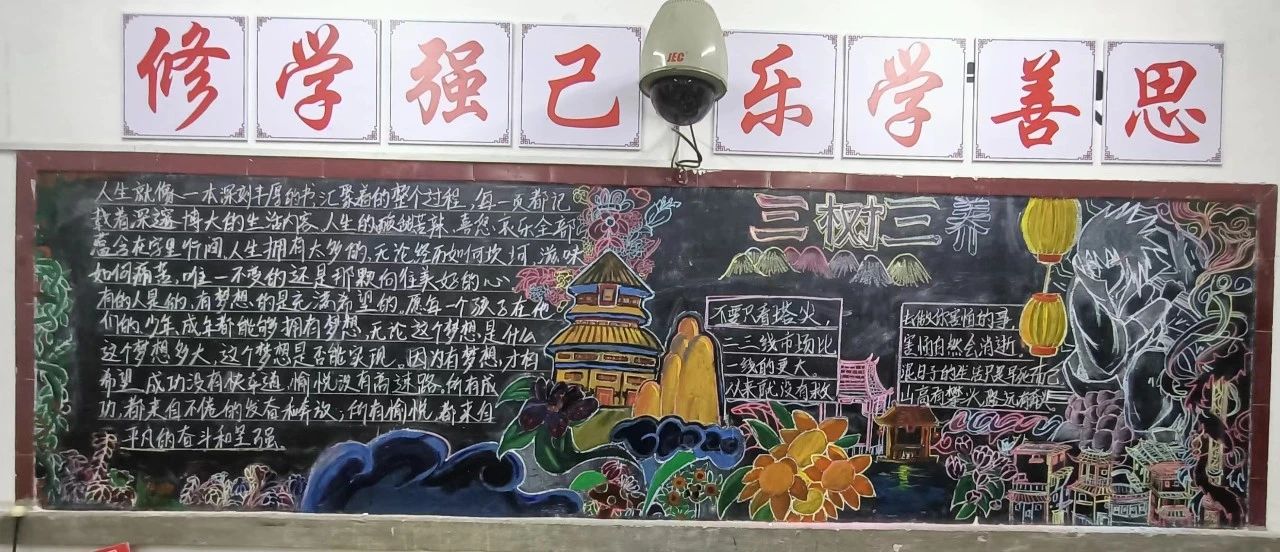 修学强己 乐学善思
JEC
人生就像一本深刻丰厚的书汇聚着的整个过程，每一页都记
载着深邃博大的生活内容，人生的酸甜苦辣、喜怒哀乐全部
蕴含在字里行间，人生拥有太多的，无论经历如何坎坷，滋味
如何痛苦，唯一不变的还是那颗向往美好的心
有的人是的，有梦想的是充满希望的。愿每一个孩子在他
们的少年、成年都能够拥有梦想，无论这个梦想是什么
这个梦想多大，这个梦想是否能实现。因为有梦想，才有
希望，成功没有快车道，愉悦没有高速路，所有成
功，都来自不倦的发奋和奔放；所有愉悦，都来自
平凡的奋斗和坚强
三树三养
不要只看塔尖，
二三线市场比
一线的更大。
从来就没有救
去做你害怕的事，
害怕自然会消逝，
混日子的生活只是
山高有攀